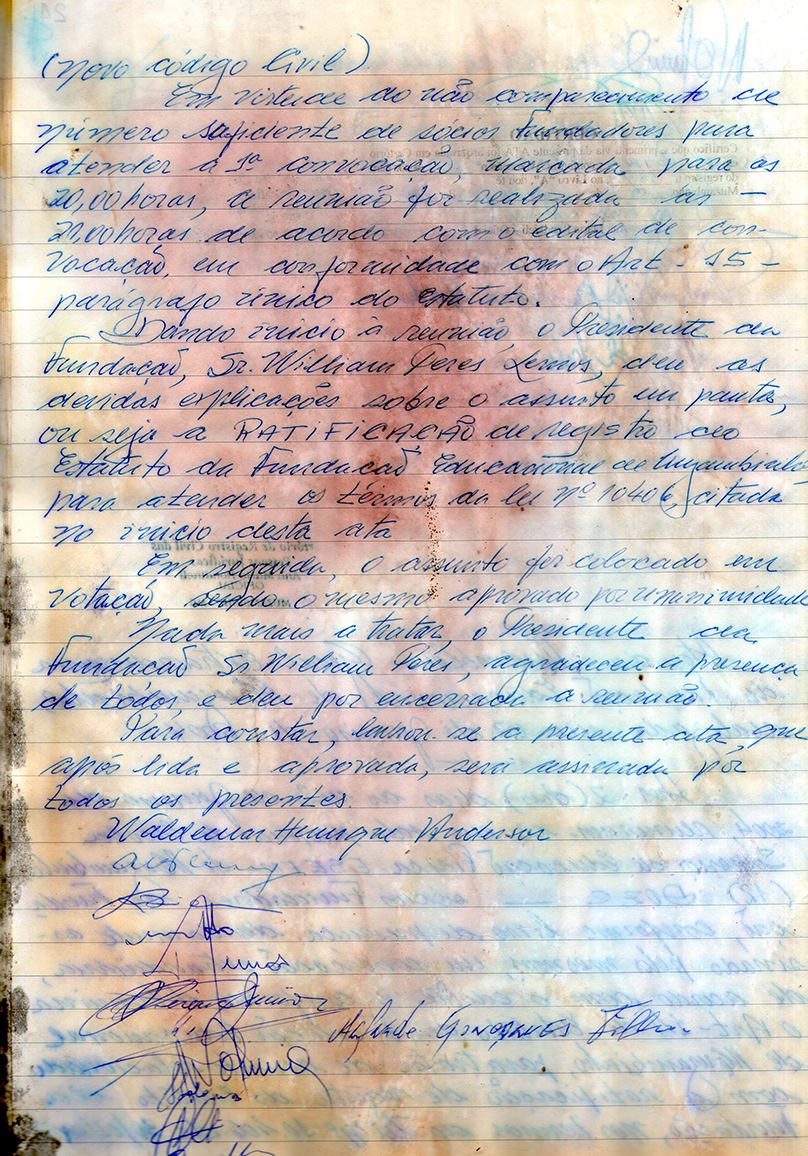 (novo código Civil)
Em virtude do não comparecimento de
número suficiente de sócios fundadores para
atender a 1ª convocação, marcada para as
20,00 horas, a reunião foi realizada as —
21,00 horas de acordo com o edital de con-
vocação, em conformidade com o Art - 15 -
parágrafo único do Estatuto.
Dando inicio à reunião, o Presidente da
Fundação, Sr. William Peres Lemos, deu as
devidas explicações sobre o assunto em pauta,
ou seja a RATIFICAÇÃO de registro do
Estatuto da Fundação Educacional de Muzambinho
para atender os têrmos da lei nº 10406, citada
no inicio desta ata
Em seguida, o assunto foi colocado em
votação, sendo o mesmo aprovado por unanimidade
Nada mais a tratar, o Presidente da
Fundação Sr William Peres, agradeceu a presença
de todos, e deu por encerrada a reunião.
Para constar, lavrou-se a presente ata, que
após lida e aprovada, será assinada por
todos os presentes.
Waldemar Henrique Anderson
Gonçalves Filho